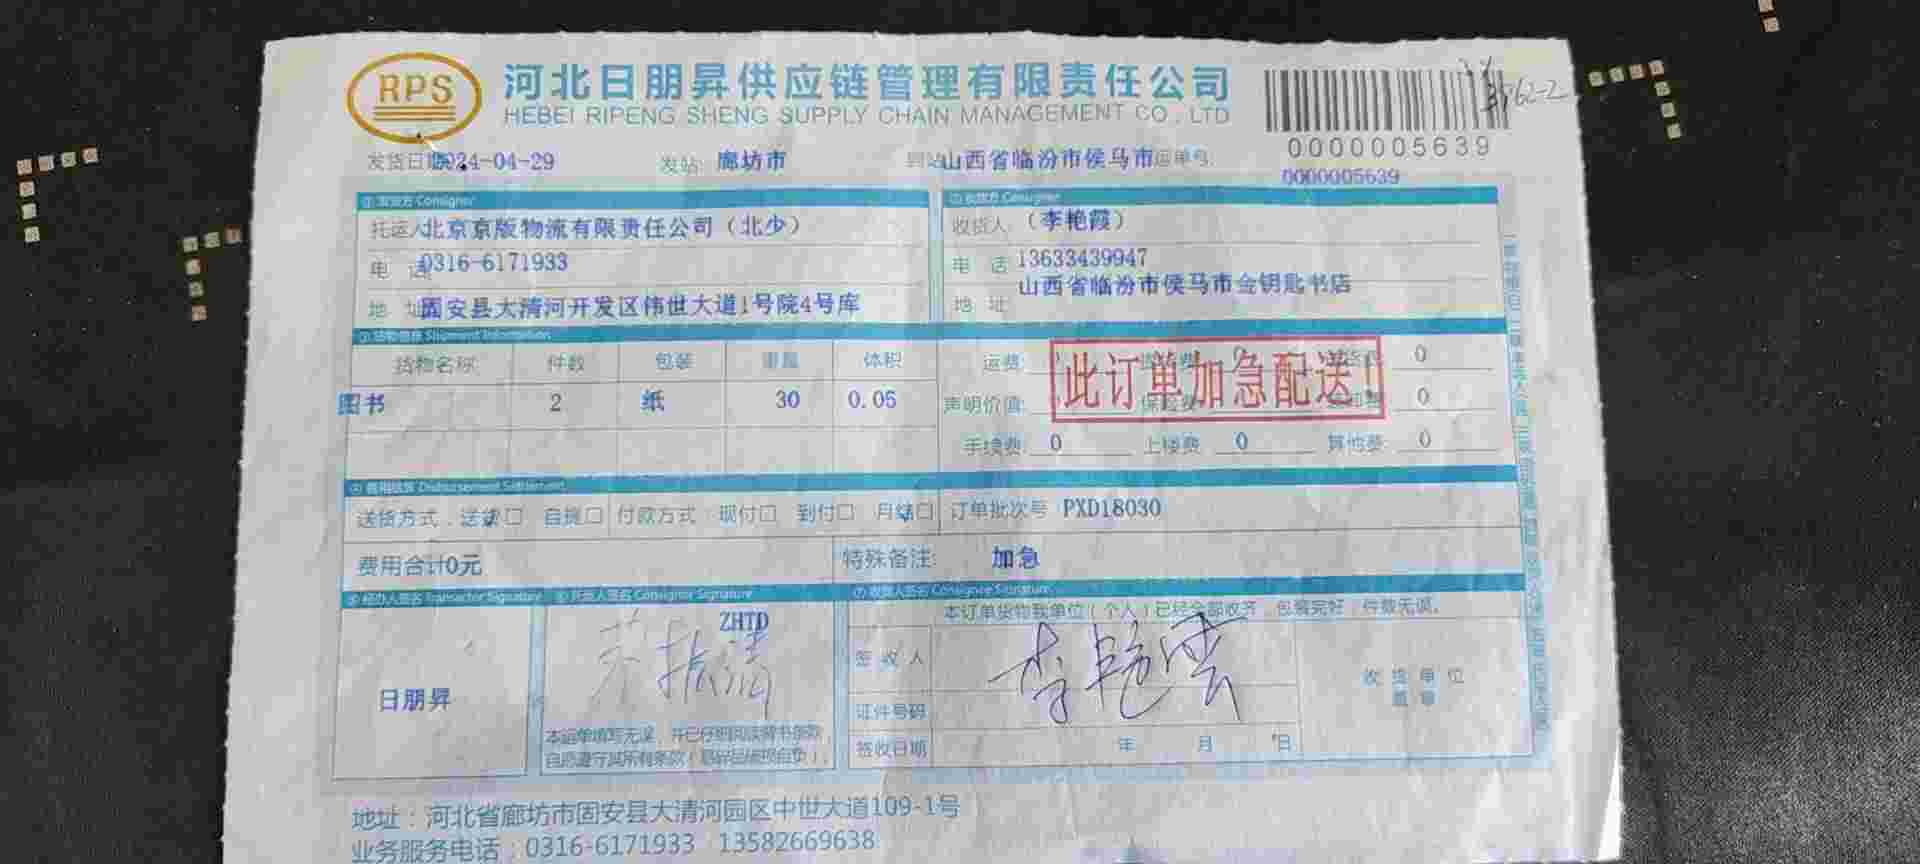 RPS
河北日朋昇供应链管理有限责任公司
HEBEI RIPENG SHENG SUPPLY CHAIN MANAGEMENT CO., LTD
62-2
0000005639
发货日期 2024-04-29 发站: 廊坊市 到站 山西省临汾市侯马市 运单号: 0000005639
① 发货方 Consigner
② 收货方 Consignee
托运人 北京京版物流有限责任公司（北少）
收货人: （李艳霞）
电 话 0316-6171933
电 话 13633439947
地 址 固安县大清河开发区伟世大道1号院4号库
地 址 山西省临汾市侯马市金钥匙书店
③ 货物信息 Shipment Information
货物名称 件数 包装 重量 体积
运费: 0 0
此订单加急配送!
图书 2 纸 30 0.05
声明价值: 保险费 0
手续费: 0 上楼费 0 其他费: 0
④ 费用结算 Disbursement Settlement
送货方式: 送货口 自提口 付款方式: 现付口 到付口 月结口 订单批次号 PXD18030
费用合计0元 特殊备注: 加急
⑤ 经办人签名 Transactor Signature
⑥ 托运人签名 Consignor Signature
⑦ 收货人签名 Consignee Signature
本订单货物我单位（个人）已经全部收齐，包装完好，件数无误。
日朋昇
ZHTD
振清
签 收 人 李艳霞
证件号码
收货单位
盖章
本运单填写无误，并已仔细阅读背书条款，
自愿遵守其所有条款（易碎品破损自负）。
签收日期 年 月 日
地址：河北省廊坊市固安县大清河园区中世大道109-1号
业务服务电话：0316-6171933 13582669638